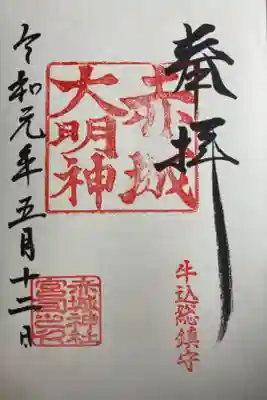 奉拝
赤城
大明神
牛込総鎮守
令和元年五月十二日
赤城神社
宮司之印